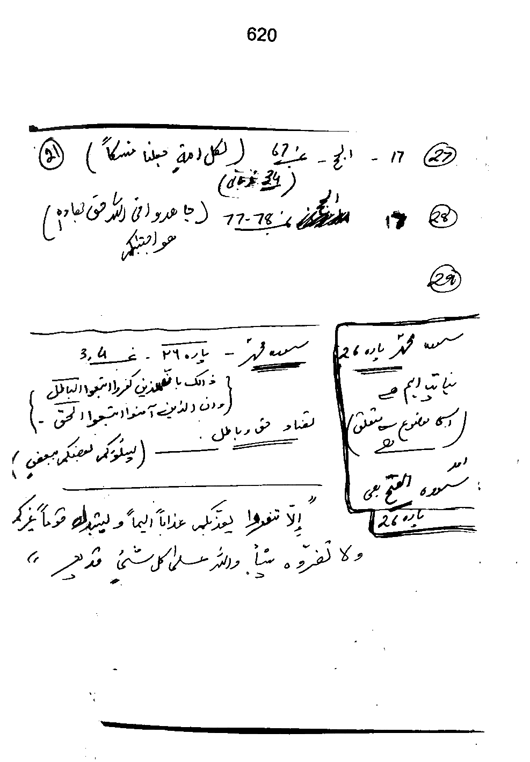 620
(27) 17 - الحج - 67 (لکل امةٍ جعلنا منسکاً) (21)
(34)
(28) 17 الحج 77-78 (جاهدوا فی اللہ حق جهاده
هو اجتبٰکم)
(29)
سورہ محمدؐ پارہ 26
نہایت اہم ہے
(اسی موضوع سے متعلق ہے)
اور
سورہ الفتح بھی
پارہ 26
سورہ محمدؐ - پارہ ۲۶ - 3,4
{ذالک بان الذین کفروا اتبعوا الباطل
وان الذین آمنوا اتبعوا الحق -}
تضاد حق و باطل
(لیبلُوَکم بعضکم ببعضٍ)
"إلّا تنفروا یعذّبکم عذاباً الیماً و یستبدل قوماً غیرکم
ولا تضرّوہ شیأً واللہ علی کل شئیٍ قدیر"